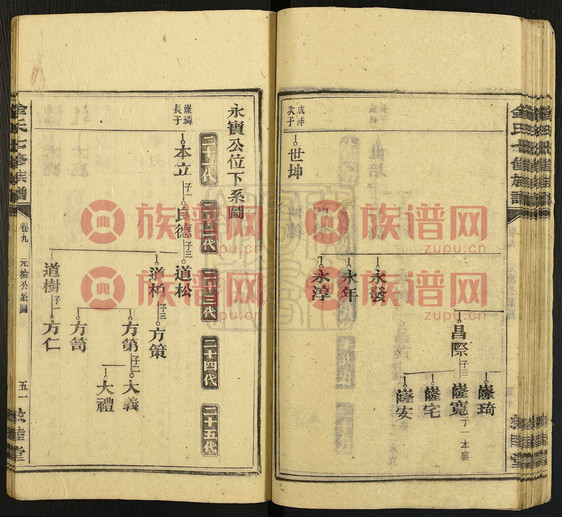 成祥
次子
世坤
永發
永年
永淳
昌際 子三
薩琦
薩寬 子一 本襄
薩宅
薩安
永寶公位下系圖
二十一代
二十二代
二十三代
二十四代
二十五代
長子
本立 子一
良德 子三
道松
道柏 子三
道樹 子一
方策
方第
方笥
方仁
大義
大禮
氏七修族譜
卷九
元榆公系圖
五一
敦睦堂
族谱网
zupu.cn
族谱网
zupu.cn
族谱网
zupu.cn
族谱网
zupu.cn